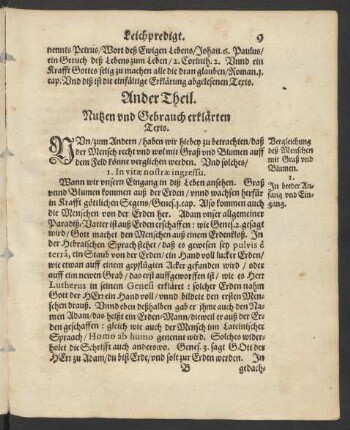 Leichpredigt. 9
nennts Petrus/ Wort deß Ewigen Lebens/ Johan. 6. Paulus/
ein Geruch deß Lebens zum Leben/ 2. Corinth. 2. Vnnd ein
Krafft Gottes selig zu machen alle die dran glauben/ Roman. 1.
cap. Vnd diß ist die einfältige Erklärung abgelesenen Texts.
Ander Theil.
Nutzen vnd Gebrauch erklärten
Texts.
NVn/ zum Andern/ haben wir hiebey zu betrachten/ daß
der Mensch recht vnd wol mit Graß vnd Blumen auff
dem Feld könne verglichen werden. Vnd solches/
Vergleichung
deß Menschen
mit Graß vnd
Blumen.
1. In vitæ nostræ ingressu.
1.
In beeder An-
fang vnd Ein-
gang.
Wann wir vnsern Eingang in diß Leben ansehen. Graß
vnnd Blumen kommen auß der Erden/ vnnd wachsen herfür
in Krafft göttlichen Segens/ Genes. 1. cap. Also kommen auch
die Menschen von der Erden her. Adam vnser allgemeiner
Paradiß-Vatter ist auß Erden erschaffen: wie Genes. 2. gesagt
wird/ Gott machet den Menschen auß einem Erdenkloß. In
der Hebraischen Sprach stehet/ daß es gewesen sey pulvis è
terrâ, ein Staub von der Erden/ ein Hand voll lucker Erden/
wie etwan auff einem gepflügten Acker gefunden wird/ oder
auff ein newen Grab/ das erst auffgeworffen ist/ wie es Herr
Lutherus in seinem Genesi erkläret: solcher Erden nahm
Gott der HErr ein Hand voll/ vnnd bildete den ersten Men-
schen drauß. Vnnd eben deßhalben gab er ihme auch den Na-
men Adam/ das heißt ein Erden-Mann/ dieweil er auß der Er-
den geschaffen: gleich wie auch der Mensch inn Lateinischer
Spraach/ Homo ab humo genennt wird. Solches wider-
holet die Schrifft auch anderswo. Genes. 3. sagt GOtt der
HErr zu Adam/ du bist Erde/ vnd solt zur Erden werden. In
B gedach-